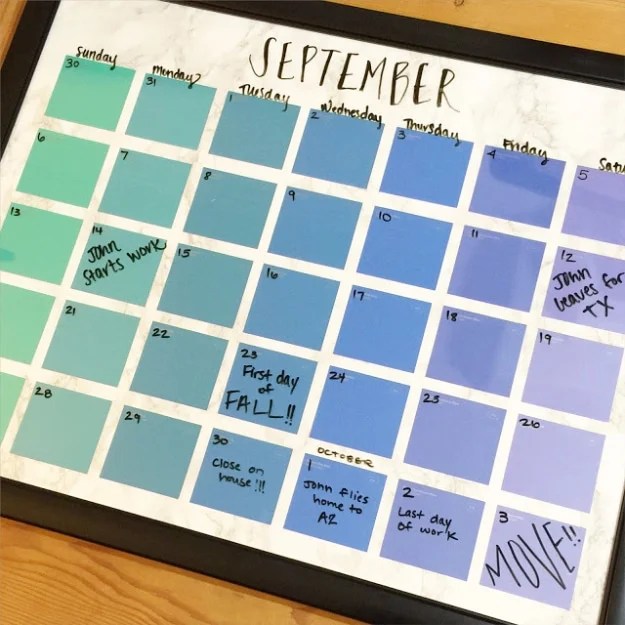 SEPTEMBER
Sunday Monday Tuesday Wednesday Thursday Friday Satu
30 31 1 2 3 4 5
6 7 8 9 10 11 12
John
leaves for
TX
13 14 15 16 17 18 19
John
starts work
21 22 23 24 25 26
First day
of
FALL!!
28 29 30
Close on
house!!!
OCTOBER
1
John flies
home to
AZ
2
Last day
of work
3
MOVE!!